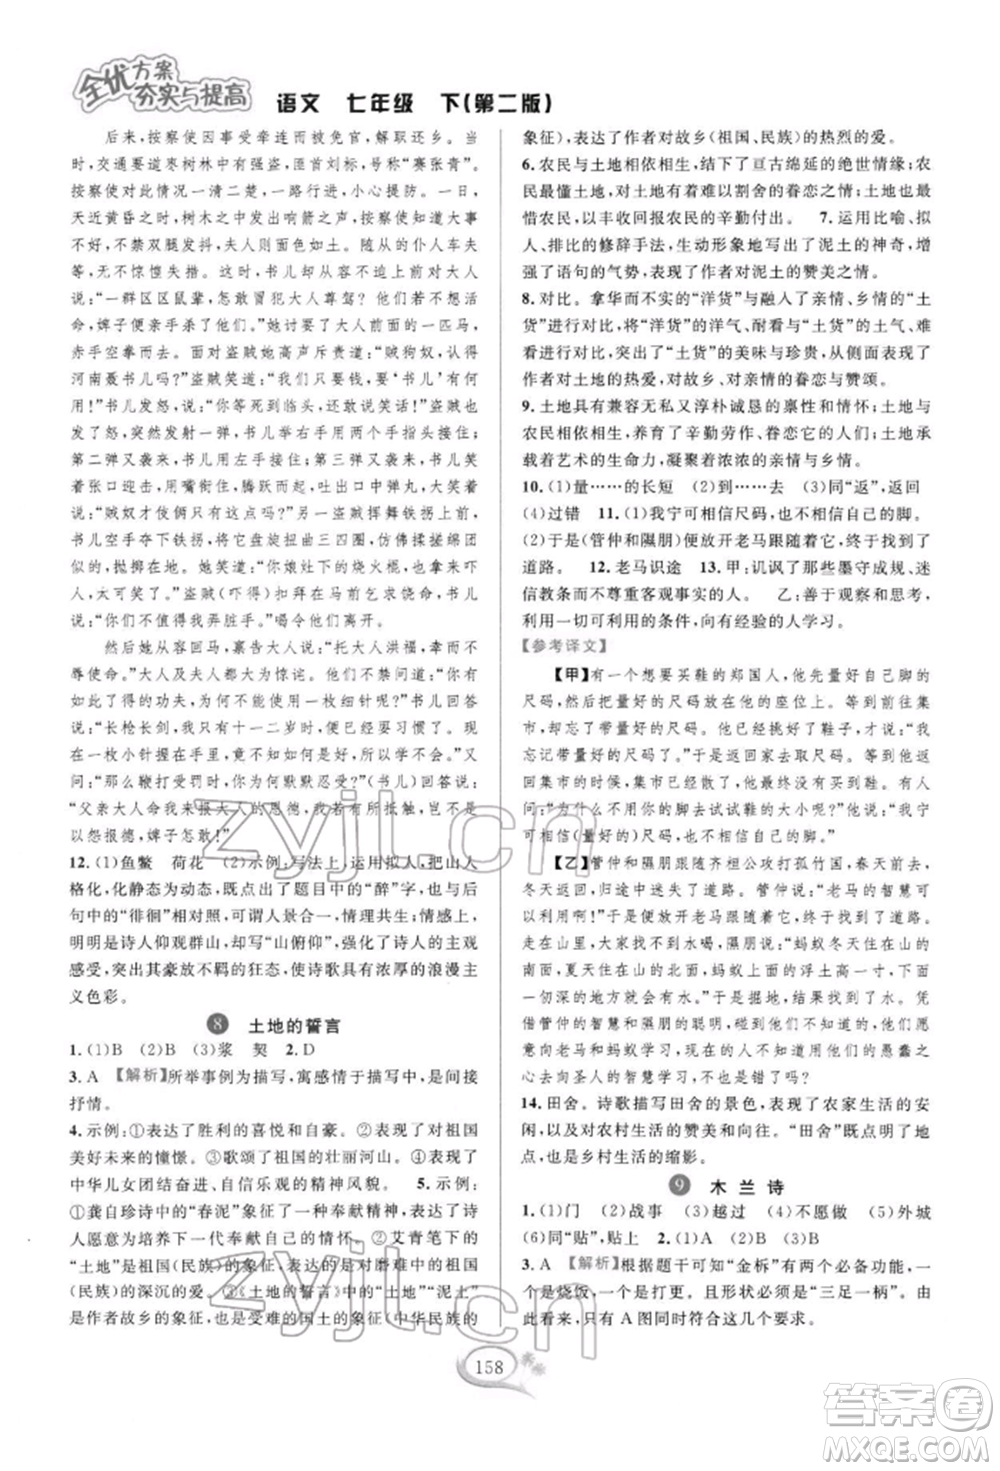 全优方案
夯实与提高
语文 七年级 下(第二版)
后来,按察使因事受牵连而被免官,解职还乡。当
时,交通要道枣树林中有强盗,匪首刘标,号称“赛张青”。
按察使对此情况一清二楚,一路行来,小心提防。一日,
天近黄昏之时,树木之中发出响箭之声,按察使知道大事
不好,不禁双腿发抖,夫人则哭泣不止。随从的仆人车夫
也无不惊惶失措。这时,书儿勒住马头,从容自若地对大人
说道:“一群区区鼠辈,怎敢惊扰大人尊驾?他们若不想
活命,婢子便亲手杀了他们。”她讨要了大人前面的一匹马,
赤手空拳走上前去。面对盗贼她高声斥责道:“贼狗奴,认得
河南聂书儿吗?”盗贼笑道:“我们只要钱,要‘书儿’何
用!”书儿怒道:“你等死到临头,还敢说笑话!”盗贼们大
怒,突然发弹射向书儿。书儿举右手用两个手指头接住;
第二弹又袭来,书儿用左手接住;第三弹又袭来,书儿笑
着张口相迎,用嘴衔住,腾跃而起,一弹吐出,击中一贼。
笑道:“贼奴才伎俩只有这点吗?”一盗贼挥舞铁拐上前,书儿
空手夺下铁拐,将它盘旋弯曲三四圈,仿佛揉搓绵团
似的,抛掷在地,笑道:“你娘灶下的烧火棍,也敢拿来
吓人?”盗贼(吓得)叩拜在马前忙乞求饶命。书儿说道:
“杀你们不值得弄脏手。”喝令他们离开。
然后她从容回马,禀告大人说:“托大人洪福,贼人已
退。”大人及夫人都大为惊诧。大人问道:“你既有如
此的功夫,为何(平时)不能用一枚细针呢?”(书儿)回答
说:“长枪长剑,我只有十一二岁时,便已经要习惯了。现
在一枚小针握在手里,不知有何用,所以学不会。”又
问:“那么鞭打受罚时,为何默默忍受?”(书儿)回答说:
“父亲大人命我来报大人的恩德,若有所抵触,岂不是
以怨报德,婢子怎敢!”
12.(1)鱼鳖 荷花 (2)示例:写法上,运用拟人,把山人
格化,化静态为动态,既照应了题目中的“醉”字,也与后
句中的“徘徊”相对照,可谓人景俱醉,情感共生;情感上,
明明是诗人仰观群山,却写“山俯仰”,强化了诗人的主观
感受,突出其豪放不羁的狂态,使诗歌具有浓厚的浪漫主
义色彩。
8 土地的誓言
1.(1)B (2)B (3)浆 契 2.D
3.A 【解析】所举事例为描写,寓感情于描写中,是间接
抒情。
4.示例:①表达了胜利的喜悦和自豪。②表现了对祖国
美好前途的憧憬。③歌颂了祖国的壮丽河山。④表达了
中华儿女团结奋进、自信乐观的精神风貌。 5.示例:
①龚自珍诗中的“春泥”象征着一种奉献精神,表达了诗
人愿意为培养下一代奉献的精神。②艾青笔下的
“土地”是祖国(民族)的象征,表达的是对磨难中的祖国
(民族)的深沉的爱。③《土地的誓言》中“土地”“泥土”
是作者故乡的象征,也是受难的国土的象征(中华民族的
象征),表达了作者对故乡(祖国、民族)的热烈的爱。
6.农民与土地相依相生,结下了亘古绵延的绝世情缘;农
民最懂土地,对土地有着难以割舍的眷恋之情;土地也最
怜惜农民,以丰收回报农民的辛勤付出。 7.运用比喻、拟
人、排比的修辞手法,生动形象地写出了泥土的神奇,增
强了语句的气势,表达了作者对泥土的赞美之情。
8.对比。拿华而不实的“洋货”与融入了亲情、乡情的“土
货”作对比,将“洋货”的洋气、时髦与“土货”的土气、难看
作对比,突出了“土货”的美味与珍贵,从而表达了
作者对土地的热爱,对故乡、对亲情的眷恋与赞颂。
9.土地具有兼容无私又淳朴诚恳的禀性和情怀;土地与
农民相依相存,养育了辛勤劳作、眷恋它的人们;土地承
载着艺术的生命力,凝聚了浓浓的亲情与乡情。
10.(1)量……的长短 (2)到……去 (3)同“返”,返回
(4)过错 11.(1)我宁可相信尺码,也不相信自己的脚。
(2)于是(管仲和隰朋)便放开老马跟随着它,终于找到了
道路。 12.老马识途 13.甲:讥讽了那些墨守成规、迷
信教条而不尊重客观事实的人。 乙:善于观察和思考,
利用一切可利用的条件,向有经验的人学习。
【参考译文】
【甲】有一个想要买鞋的郑国人,他先量好自己脚的
尺码,然后把量好的尺码放在他的座位上。等到前往集
市,却忘了带量好的尺码。他已经拿到了鞋子,才说:“我
忘记带量好的尺码了。”于是返回去取尺码。等到他返回
集市的时候,集市已经散了,最终没有买到鞋。有人问:
“为什么不用你的脚去试试鞋的大小呢?”他说:“我宁
可相信(量好的)尺码,也不相信自己的脚。”
【乙】管仲和隰朋跟随齐桓公攻打孤竹国,春天前往,
冬天返回,归途中迷失了道路。管仲说:“老马的智慧可
以利用。”于是放开老马跟随着它,终于找到了道路。
走在山中,大家找不到水喝,隰朋说:“蚂蚁冬天住在山的
南面,夏天住在山的北面,蚂蚁上面的浮土高一寸,下面
一仞深的地方就会有水。”于是掘地,果然得到水。凭
借管仲的智慧和隰朋的才智,遇到他们不知道的事,尚且
愿意向老马和蚂蚁学习,现在的人却不知道用他们的愚蠢之
心去向圣人的智慧学习,不也是过错吗?
14.田舍。诗歌描写田舍的景色,表现了农家生活的安
宁,以及对农村生活的赞美和向往。“田舍”点明了描写对
象,也是乡村生活的缩影。
9 木兰诗
1.(1)门 (2)战事 (3)越过 (4)不愿做 (5)外城
(6)同“贴”,贴上 2.(1)A (2)C (3)B
3.A 【解析】根据题干可知“金柝”有两个必备功能,一
个是烧饭,一个是打更。而且形状必须“三足一柄”。由此
看来,只有 A 图同时符合这几个要求。
158
zyjl.cn
zyjl.cn
答案圈
MXQE.COM